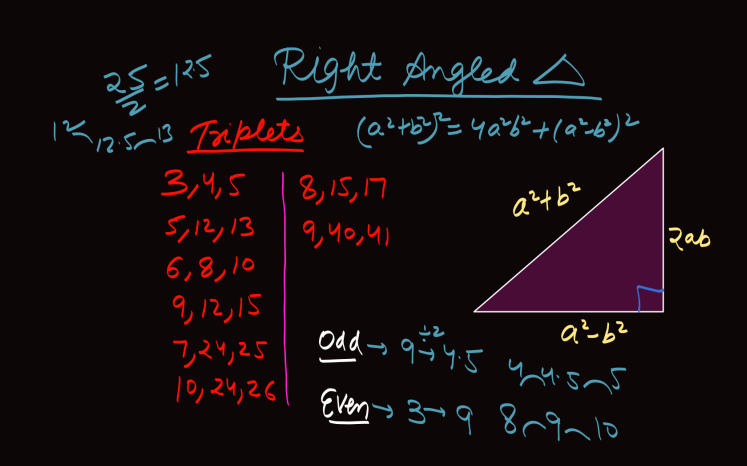 Right Angled △
25/2 = 12.5
12 12.5 13
Triplets
(a²+b²)² = 4a²b² + (a²-b²)²
3,4,5
5,12,13
6,8,10
9,12,15
7,24,25
10,24,26
8,15,17
9,40,41
a²+b²
2ab
a²-b²
Odd → 9 ÷2 → 4.5
4 4.5 5
Even → 3 → 9
8 9 10